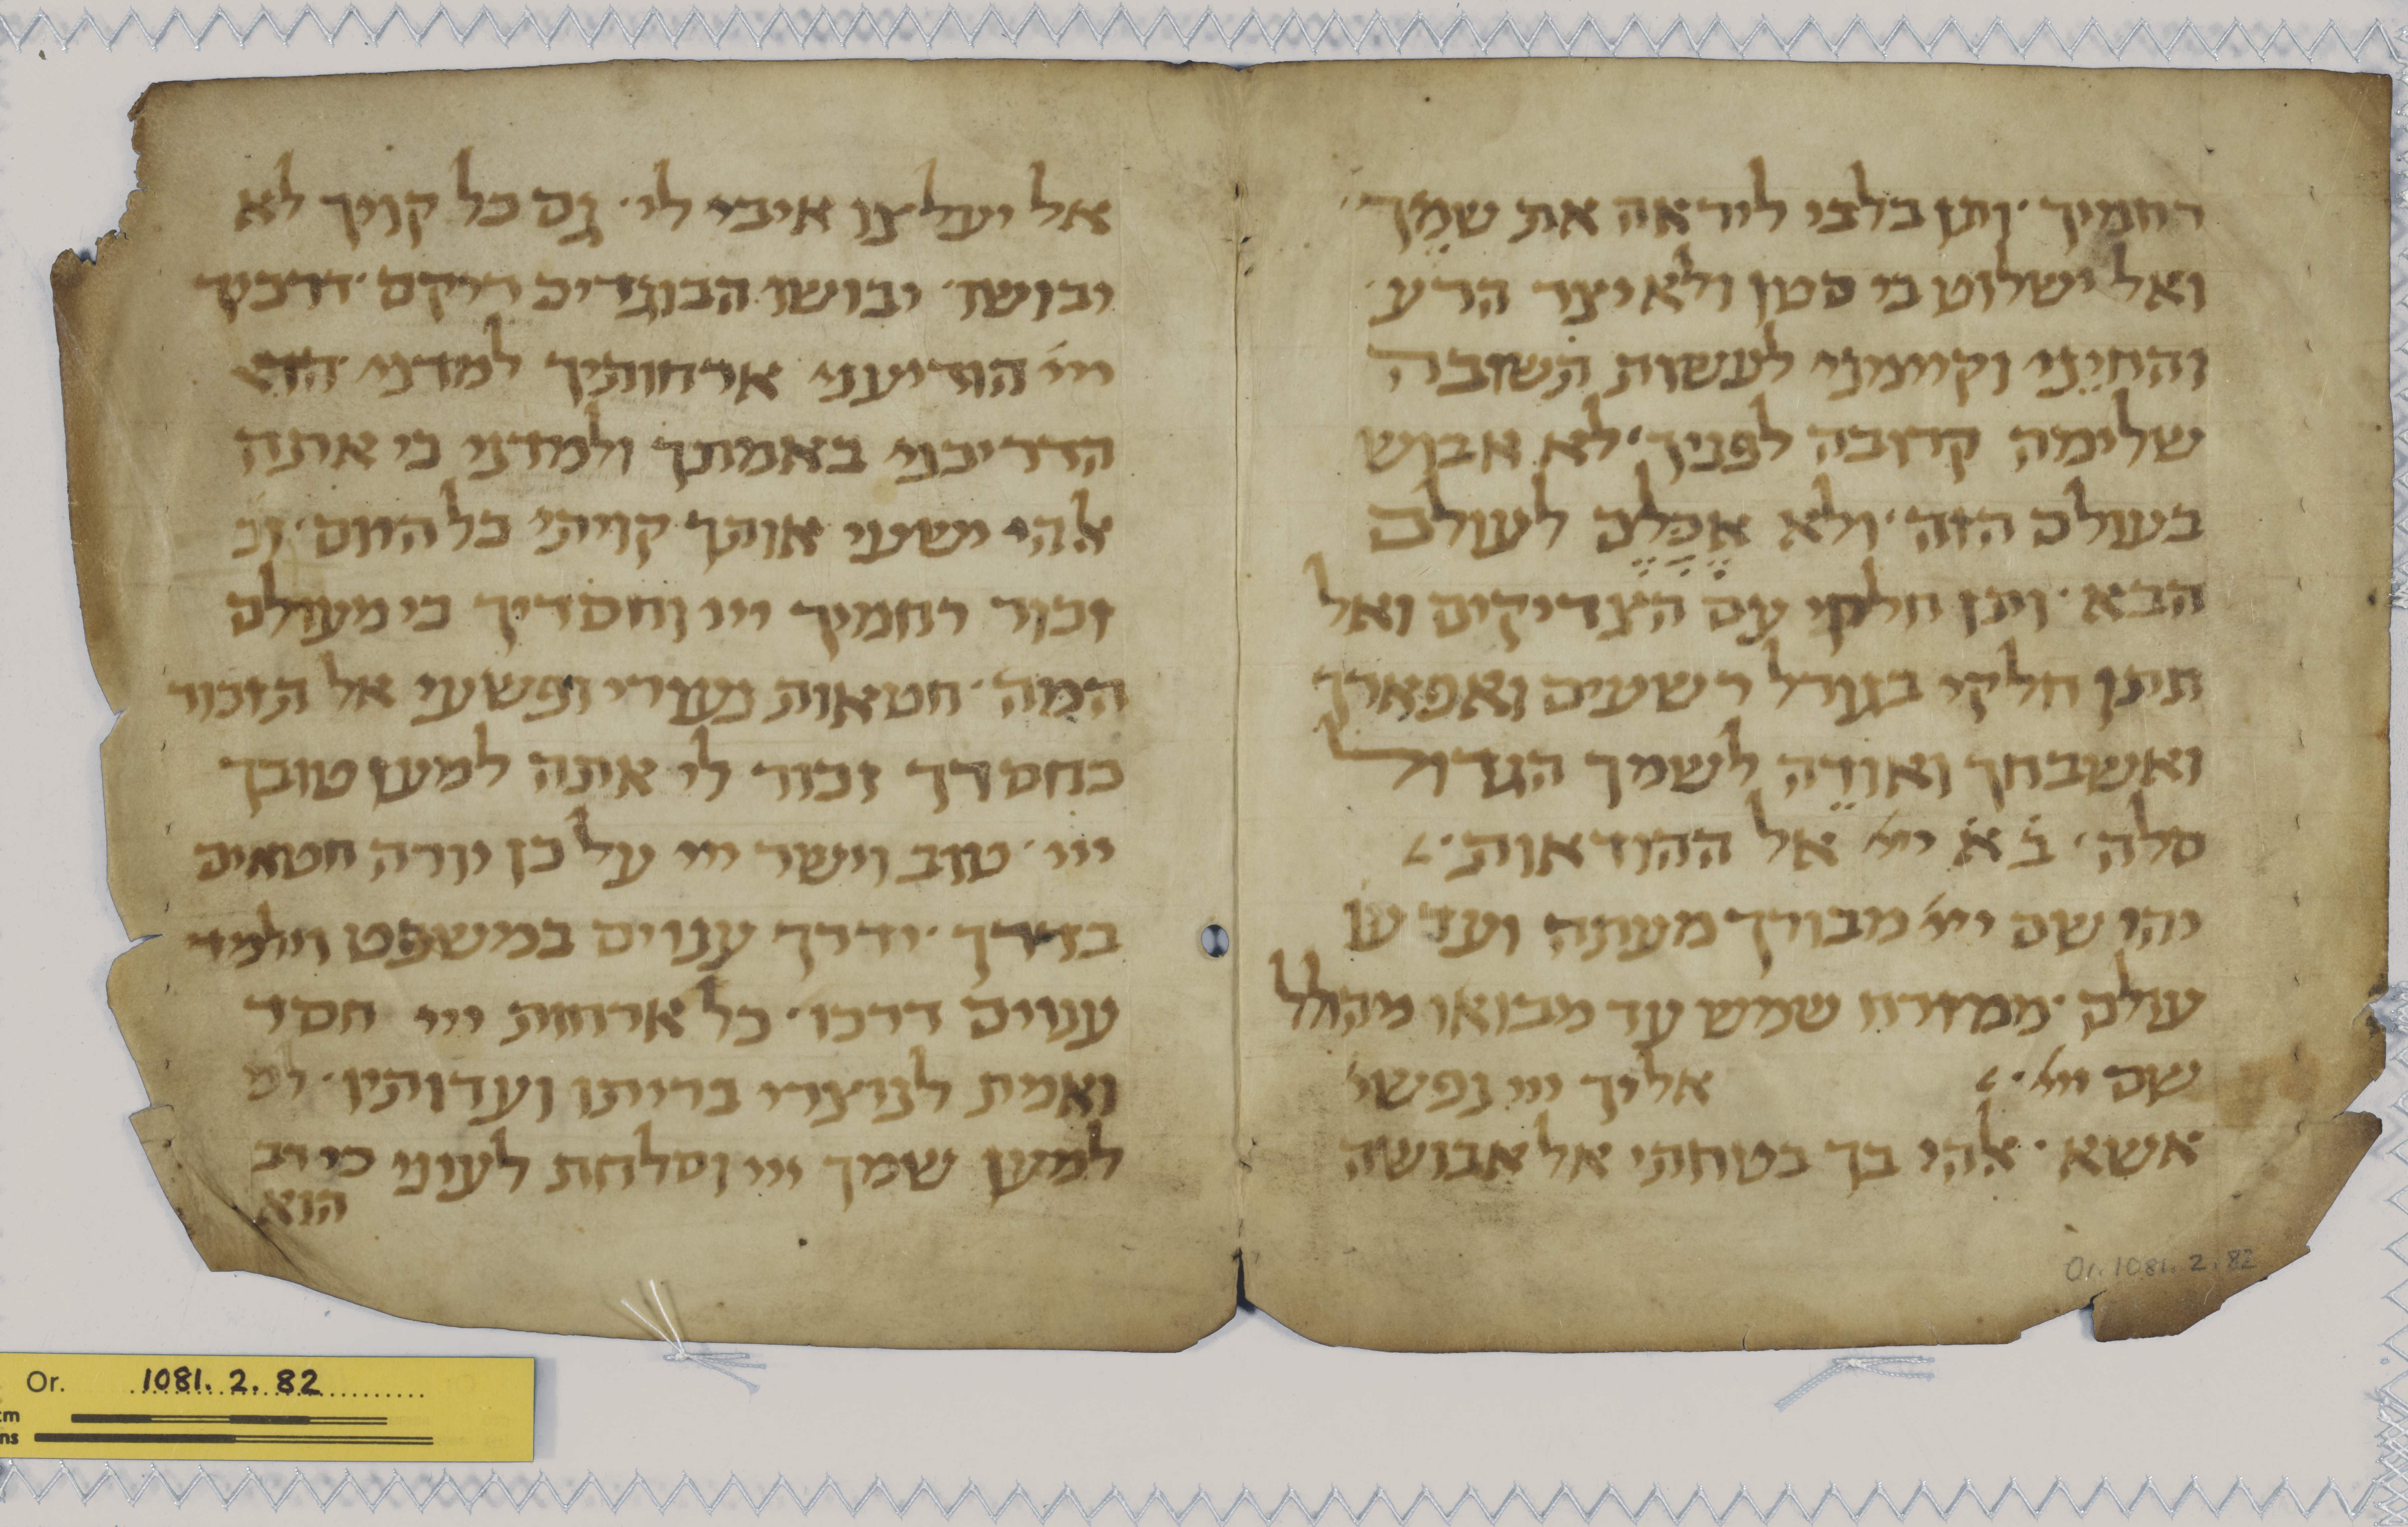 רחמיך · ותן בלבי ליראה את שמך ·
ואל ישלוט בי סטן ולא יצר הרע ·
והחיני וקיימני לעשות תשובה
שלימה קרובה לפניך · לא אבוש
בעולם הזה · ולא אֶכָּלֶם לעולם
הבא · ותן חלקי עם הצדיקים ואל
תיתן חלקי בגורל רשעים ואפארך
ואשבחך ואודה לשמך הגדול
סלה · ב׳ א׳ ייי אל ההודאות ·
יהי שם ייי מבורך מעתה ועד עו
עולם · ממזרח שמש עד מבואו מהולל
שם ייי · אליך ייי נפשי
אשא · אלהי בך בטחתי אל אבושה
אל יעלצו איבי לי · גם כל קויך לא
יבושו · יבושו הבוגדים ריקם · דרכיך
ייי הודיעני ארחותיך למדני · הד
הדריכני באמתך ולמדני כי אתה
אלהי ישעי אותך קויתי כל היום · זכ
זכור רחמיך ייי וחסדיך כי מעולם
המה · חטאות נעורי ופשעי אל תזכור
כחסדך זכור לי אתה למען טובך
ייי · טוב וישר ייי על כן יורה חטאים
בדרך · ידרך ענוים במשפט וילמד
ענוים דרכו · כל ארחות ייי חסד
ואמת לנוצרי בריתו ועדותיו · למ
למען שמך ייי וסלחת לעוני כי רב
הוא
Or. 1081. 2. 82
Or. 1081. 2. 82
cm
ns